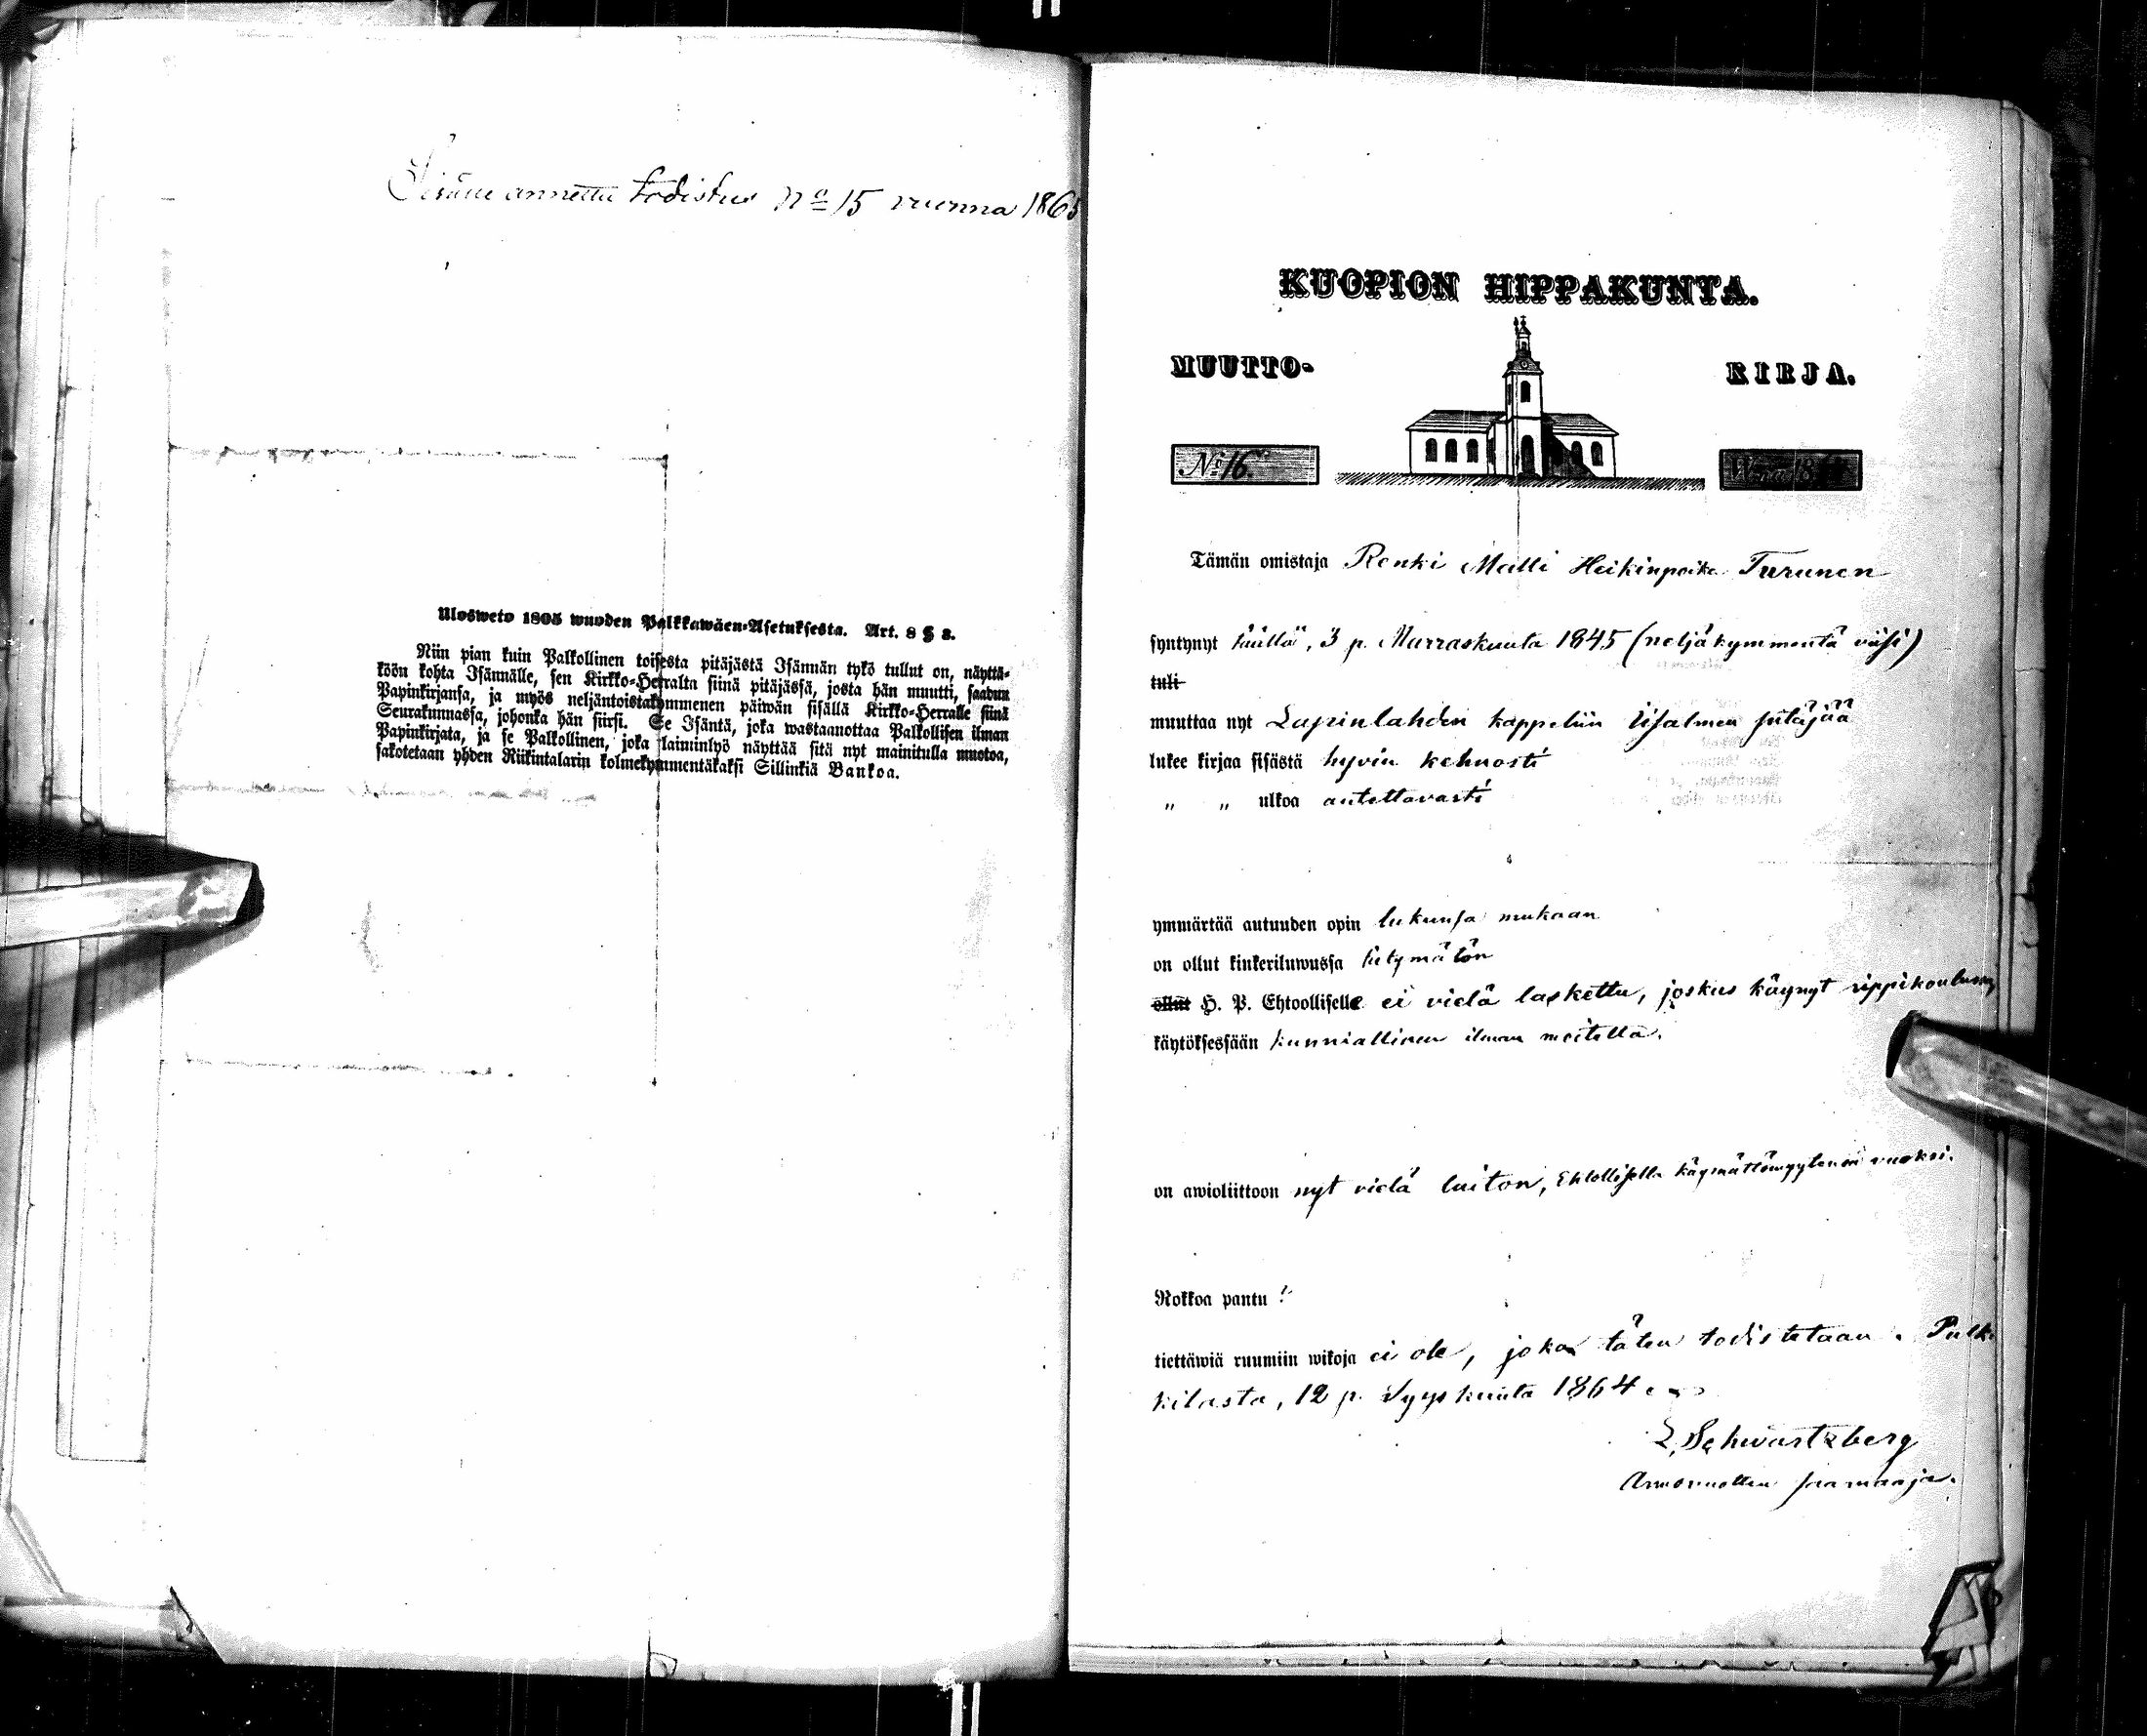 Sisään annettu todistus No 15 vuonna 1865
Ulosweto 1805 wuoden Palkkawäen-Asetuksesta. Art. 8 § 2.
Niin pian kuin Palkollinen toisesta pitäjästä Isännän tykö tullut on, näyttä-
köön kohta Isännälle, sen Kirkko-Herralta siinä pitäjässä, josta hän muutti, saadun
Papinkirjansa, ja myös neljäntoistakymmenen päiwän sisällä Kirkko-Herralle siinä
Seurakunnassa, johonka hän siirsi. Se Isäntä, joka wastaanottaa Palkollisen ilman
Papinkirjata, ja se Palkollinen, joka laiminlyö näyttää sitä nyt mainitulla muotoa,
sakotetaan yhden Riikintalarin kolmekymmentäkaksi Sillinkiä Bankoa.
KUOPION HIPPAKUNTA.
MUUTTO- KIRJA.
No 16. W:na 18
Tämän omistaja Renki Matti Heikinpoika Turunen
syntynyt täällä, 3 p. Marraskuuta 1845 (neljäkymmentä viisi)
tuli
muuttaa nyt Lapinlahden kappeliin Iisalmen pitäjää
lukee kirjaa sisästä hyvin kehnosti
„ „ ulkoa autettavasti
ymmärtää autuuden opin lukunsa mukaan
on ollut kinkeriluwussa
ollut H. P. Ehtoolliselle ei vielä laskettu, joskus käynyt rippikoulussa
käytöksessään kunniallinen ilman moitetta.
on awioliittoon nyt vielä luiton, Ehtollisella käymättömyytensä vuoksi.
Rokkoa pantu
tiettäwiä ruumiin wikoja ei ole, joka täten todistetaan. Pulk-
kilasta, 12 p. Syyskuuta 1864.
L. Schwartzberg
Armovuotten saarnaaja.